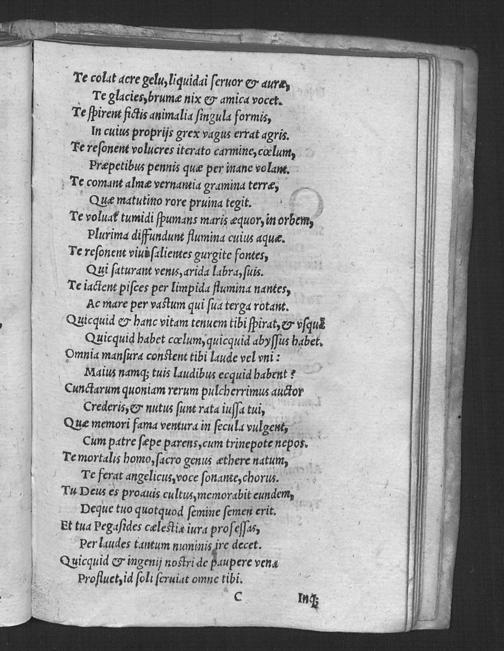 Te colat acre gelu, liquidai feruor & auræ,
Te glacies, brumæ nix & amica vocet.
Te spirent fictis animalia singula formis,
In cuius proprijs grex vagus errat agris.
Te resonent volucres iterato carmine, cœlum,
Præpetibus pennis quæ per inane volant.
Te comant almæ vernantia gramina terræ,
Quæ matutino rore pruina tegit.
Te voluat tumidi spumans maris æquor, in orbem,
Plurima diffundunt flumina cuius aquæ.
Te resonent viui salientes gurgite fontes,
Qui saturant venis, arida labra, suis.
Te iactent pisces per limpida flumina nantes,
Ac mare per vastum qui sua terga rotant.
Quicquid & hanc vitam tenuem tibi spirat, & vsquā
Quicquid habet cœlum, quicquid abyssus habet.
Omnia mansura constent tibi laude vel vni:
Maius namq; tuis laudibus ecquid habent?
Cunctarum quoniam rerum pulcherrimus auctor
Crederis, & nutus sunt rata iussa tui,
Quæ memori fama ventura in secula vulgent,
Cum patre sæpe parens, cum trinepote nepos.
Te mortalis homo, sacro genus æthere natum,
Te ferat angelicus, voce sonante, chorus.
Tu Deus es proauis cultus, memorabit eundem,
Deque tuo quotquod semine semen erit.
Et tua Pegasides cælestia iura professas,
Per laudes tantum numinis ire decet.
Quicquid & ingenij nostri de paupere vena
Profluet, id soli seruiat omne tibi.
C Inq;